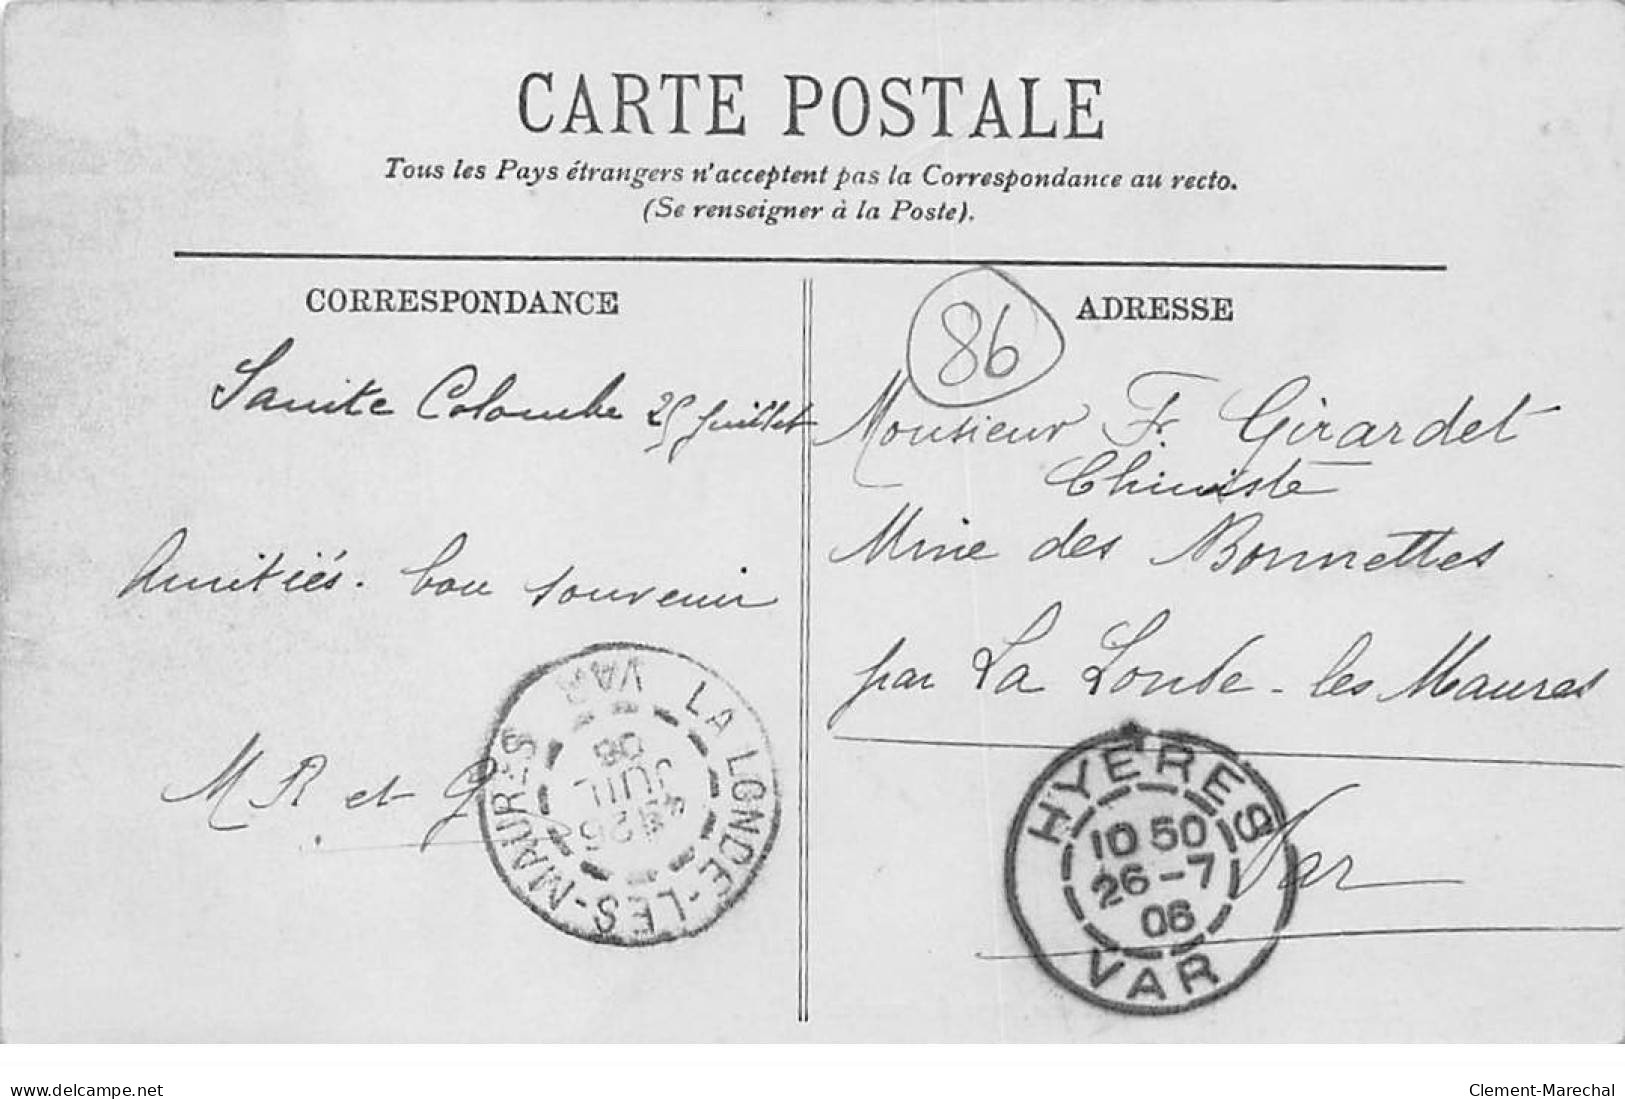 CARTE POSTALE
Tous les Pays étrangers n'acceptent pas la Correspondance au recto.
(Se renseigner à la Poste).
CORRESPONDANCE
Sainte Colombe 25 Juillet
Amitiés. bon souvenir
M R et G
LA LONDE-LES-MAURES
VAR
26
JUIL
06
ADRESSE
86
Monsieur Fr. Girardet
Chimiste
Mine des Bormettes
par La Londe-les Maures
Var
HYERES
10 50
26-7
06
VAR
www.delcampe.net
Clement-Marechal